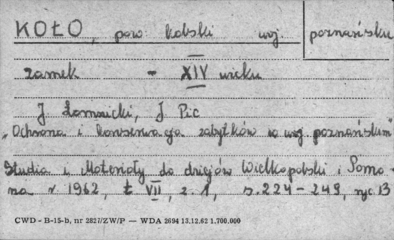 KOŁO, pow. kolski woj. poznańskie
zamek - XIV wieku
J Łomnicki, J Pic
„Ochrona i konserwacja zabytków w woj. poznańskim"
Studia i Materiały do dziejów Wielkopolski i Pomo-
na r 1962, t VII, z. 1, s. 224 - 249, ryc. 13
CWD - B-15-b, nr 2827/ZW/P — WDA 2694 13.12.62 1,700.000